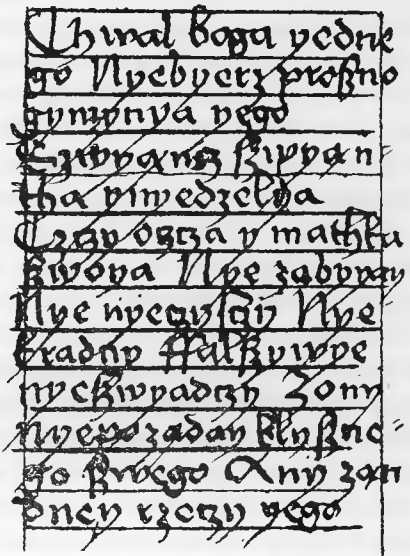 Chwal boga yedne
go Nyebyerz proszno
gymyenya yego
Czwyącz szwyąn
tha y nyedzelya
Czczy oscza y mathka
szwoya Nye zabyyay
Nye nyeczysczy Nye
kradny ffalszywye
nye szwyadczy Zony
nyepozaday blyszne
go szwego Any zan
dney rzeczy yego